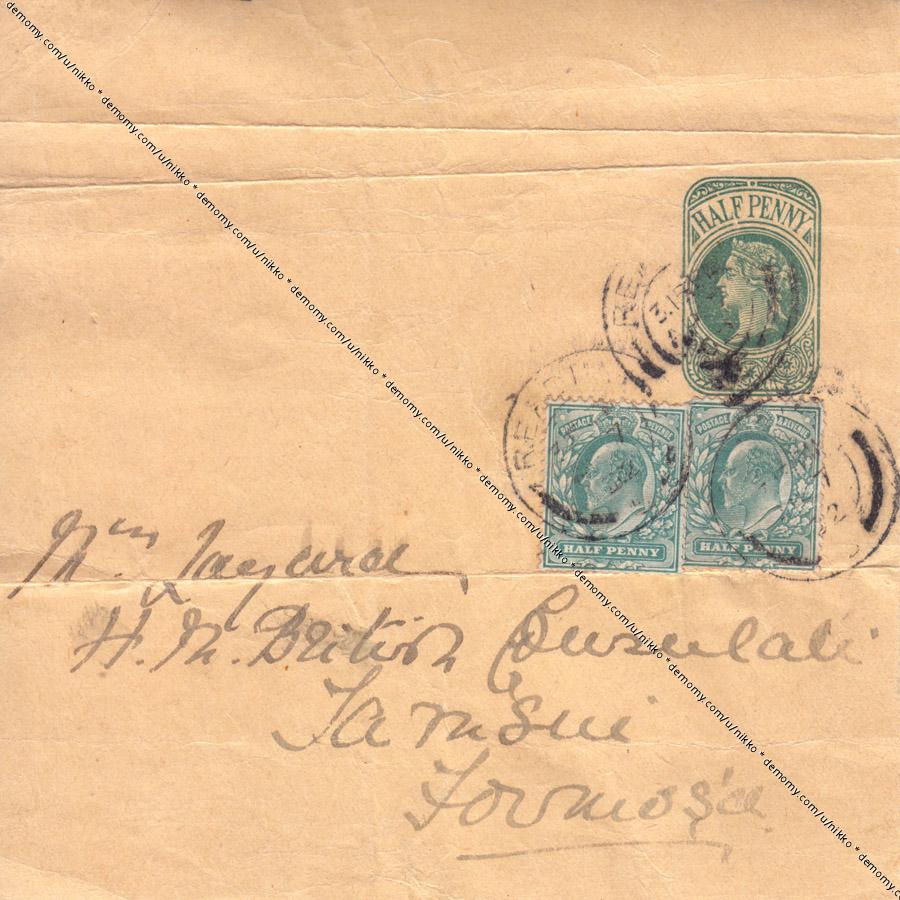 demomy.com/u/nikko * demomy.com/u/nikko * demomy.com/u/nikko * demomy.com/u/nikko * demomy.com/u/nikko * demomy.com/u/nikko * demomy.com/u/nikko * demomy.com/u/nikko * demomy.com/u/nikko * demomy.com
HALF PENNY
POSTAGE & REVENUE
HALF PENNY
POSTAGE & REVENUE
HALF PENNY
Mrs Layard
H. M. British Consulate
Tamsui
Formosa